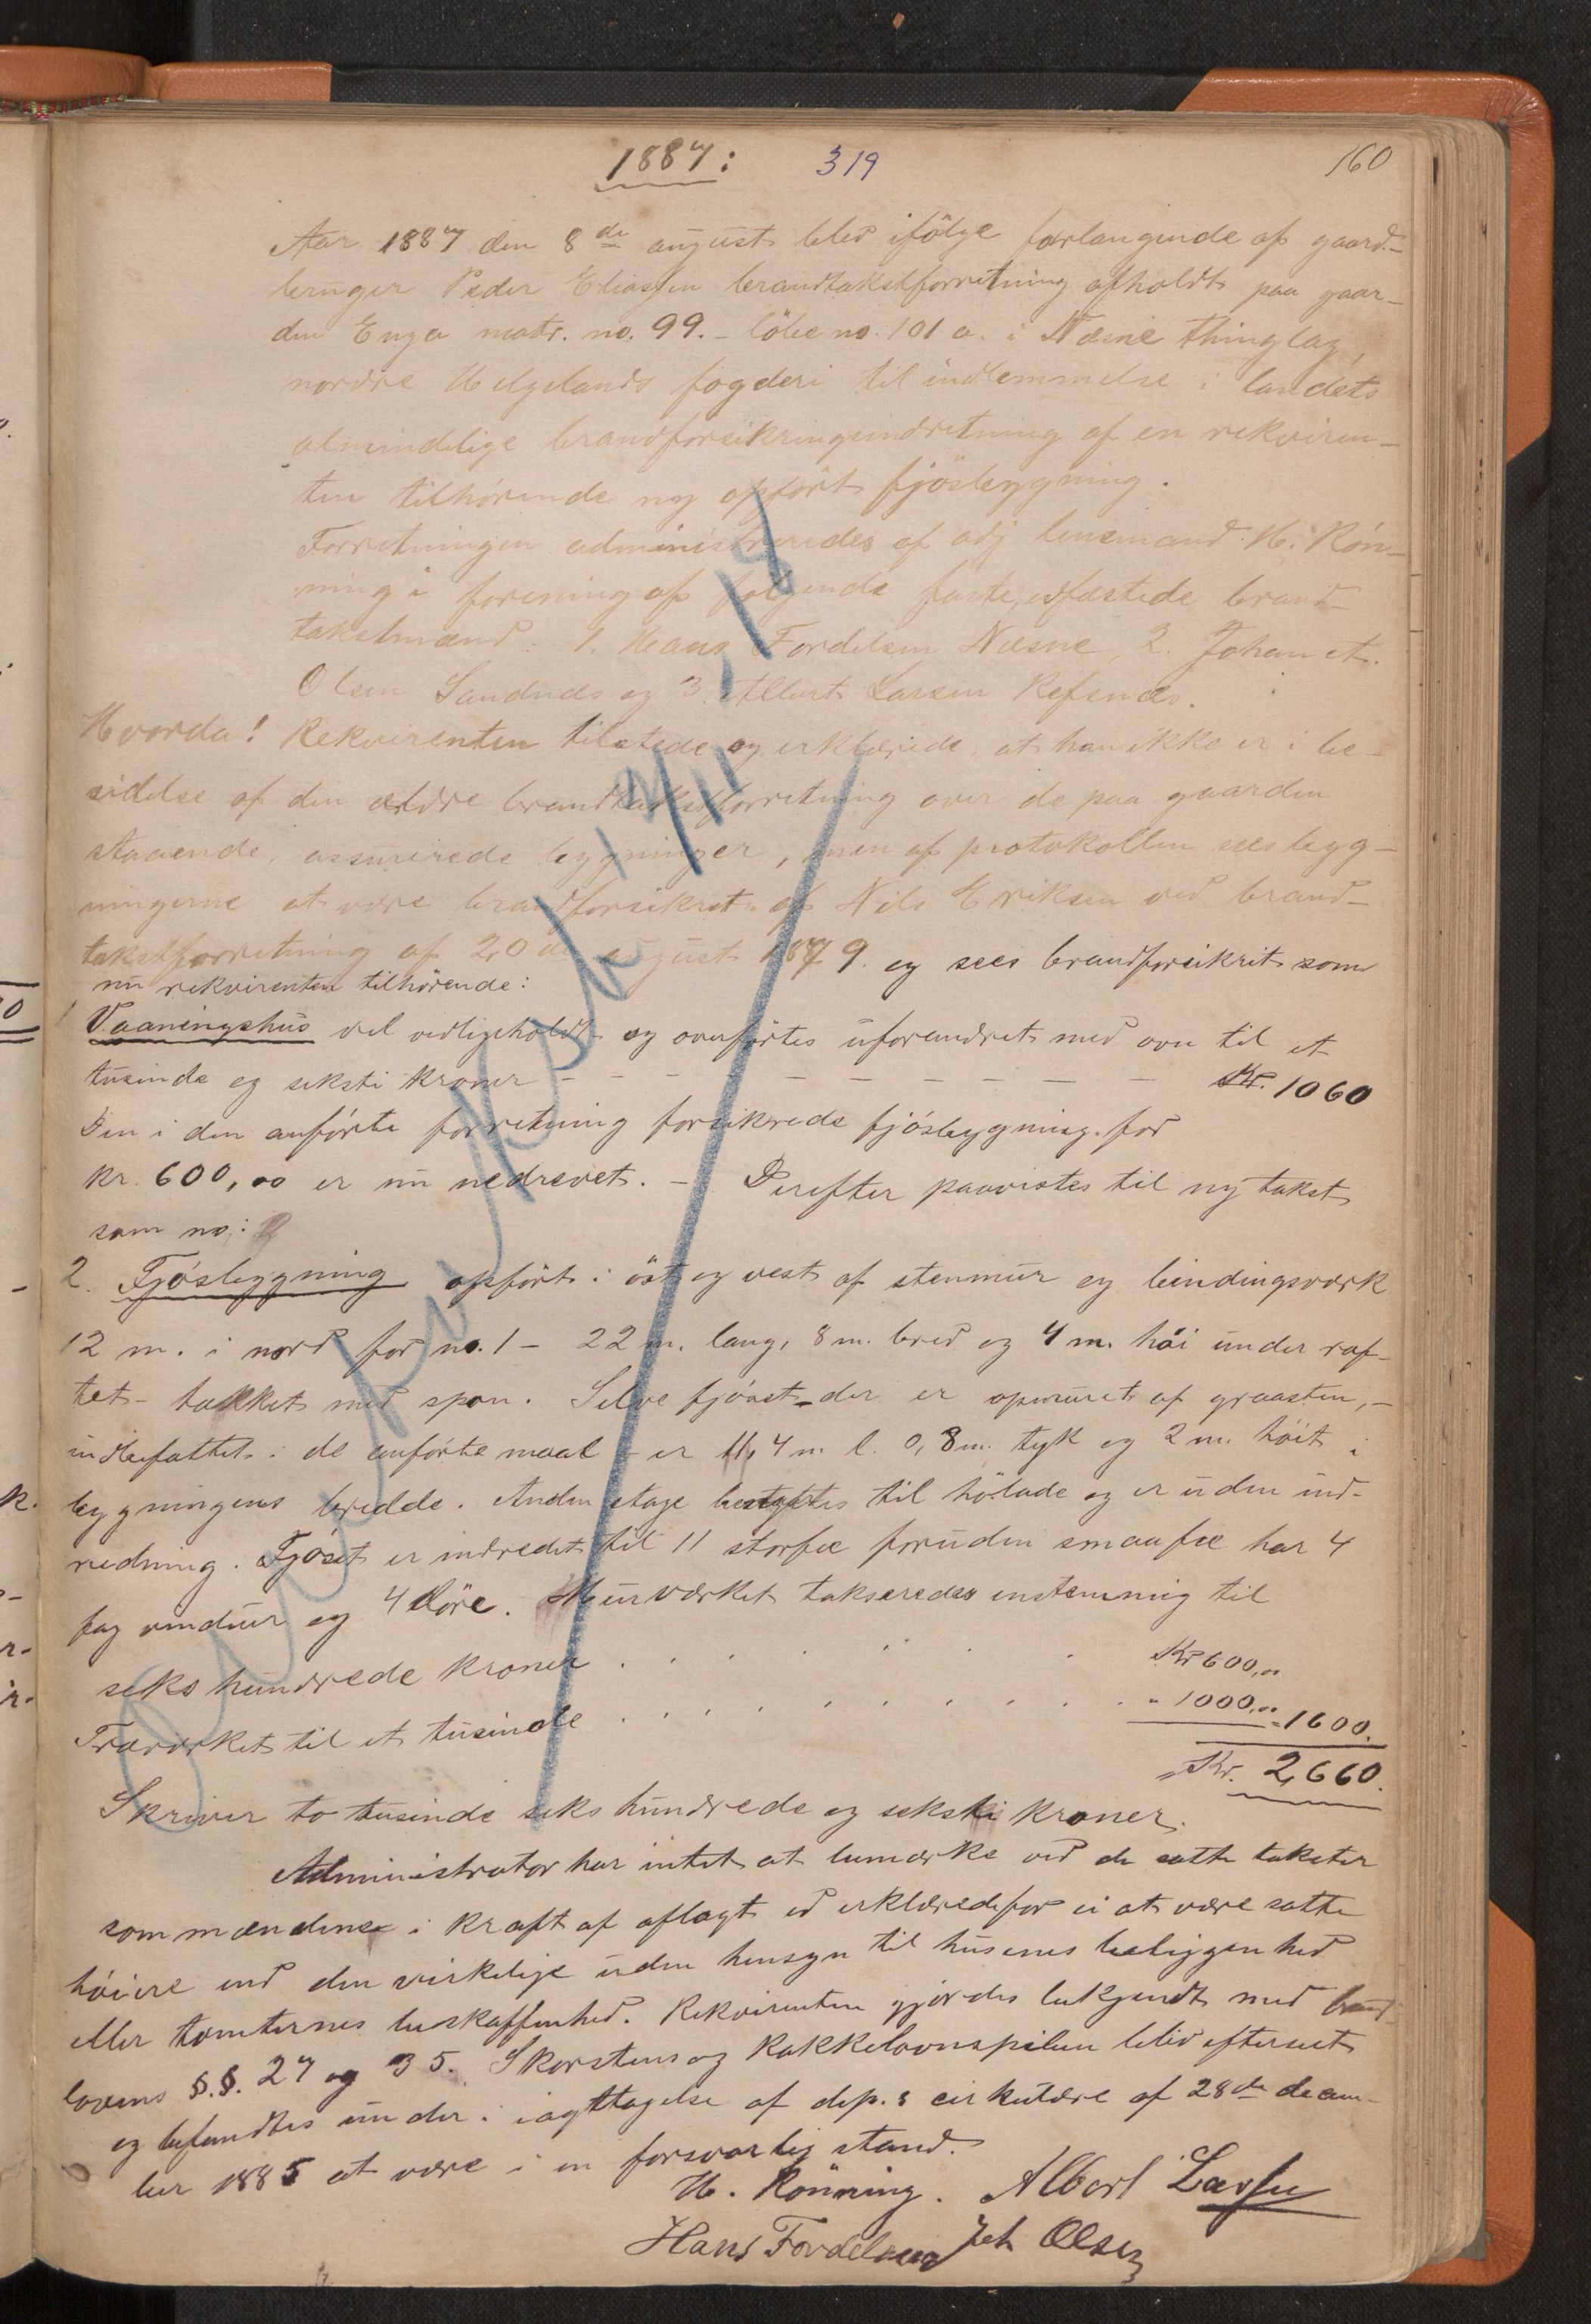 1887: 319 160
Aar 1887 den 8de august blev ifölge forlangende af gaard-
bruger Peder Eliassen brandtakstforretning afholdt paa gaar-
den Enga matr. no. 99. – löbe no. 101 a. i Næsne thinglag,
nordre Helgelands fogderi til indlemmelse i landets
almindelige brandforsikringsindretning af en rekviren-
ten tilhörende ny opfört fjösbygning.
Forretningen administreredes af adj lensmand H. Rön-
ning i forening af følgende faste, edfæstede brand-
takstmænd: 1. Hans Fordelsen Næsne, 2. Johan A.
Olsen Sandnes og 3. Albert Larsen Refsnæs.
Hvorda! Rekvirenten tilstede og erklærede, at han ikke er i be-
siddelse af den ældre brandtakstforretning over de paa gaarden
staaende, assurerede bygninger, men af protokollen sees bygg-
ningerne at være brandforsikret af Nils Eriksen ved brand-
takstforretning af 20de august 1879. og sees brandforsikrit som
nu rekvirenten tilhörende:
1 Vaaningshus vel vedligeholdt og overførtes uforandret med ovn til et
tusinde og seksti kroner – – – – – – – – – Kr. 1060
Den i den anførte forretning forsikrede fjösbygning for
kr. 600,00 er nu nedrevet. – Derefter paavistes til ny takst
som no:
2. Fjösbygning opfört i öst og vest af stenmur og bindingsværk
12 m. i nord for no. 1 – 22 m. lang, 8 m. bred og 4 m. höi under raf-
tet – tækket med spon. Selve fjöset – der er opmuret af graasten, –
indbefattet i de anförte maal – er 11,4 m l. 0,8 m. tyk og 2 m. höit i
bygningens bredde. Anden etage benyttes til hölade og er uden ind-
redning. Fjöset er indredet til 11 storfæ foruden smaafæ har 4
fag vinduer og 4 döre. Murværket takseredes enstemmig til
seks hundrede kroner . . . . . . Kr 600,00
Træværket til et tusinde . . . . . . . . . " 1000,00 = 1600.
Kr. 2,660.
Skriver to tusinde seks hundrede og seksti kroner.
Administrator har intet at bemærke ved de satte takster
som mændene i kraft af aflagt ed erklærede for ei at være satte
höiere end den virkelige uden hensyn til husenes beliggenhed
eller tomternes beskaffenhed. Rekvirenten gjördes bekjendt med brand-
lovens §.§. 27 og 35. Skorstens og kakkelovnspiben blev efterseet
og befandtes under iagttagelse af dep.s cirkulære af 28de decem-
ber 1885 at være i en forsvarlig stand.
H. Rönning. Albert Larsen
Hans Fordelsen Joh Olsen